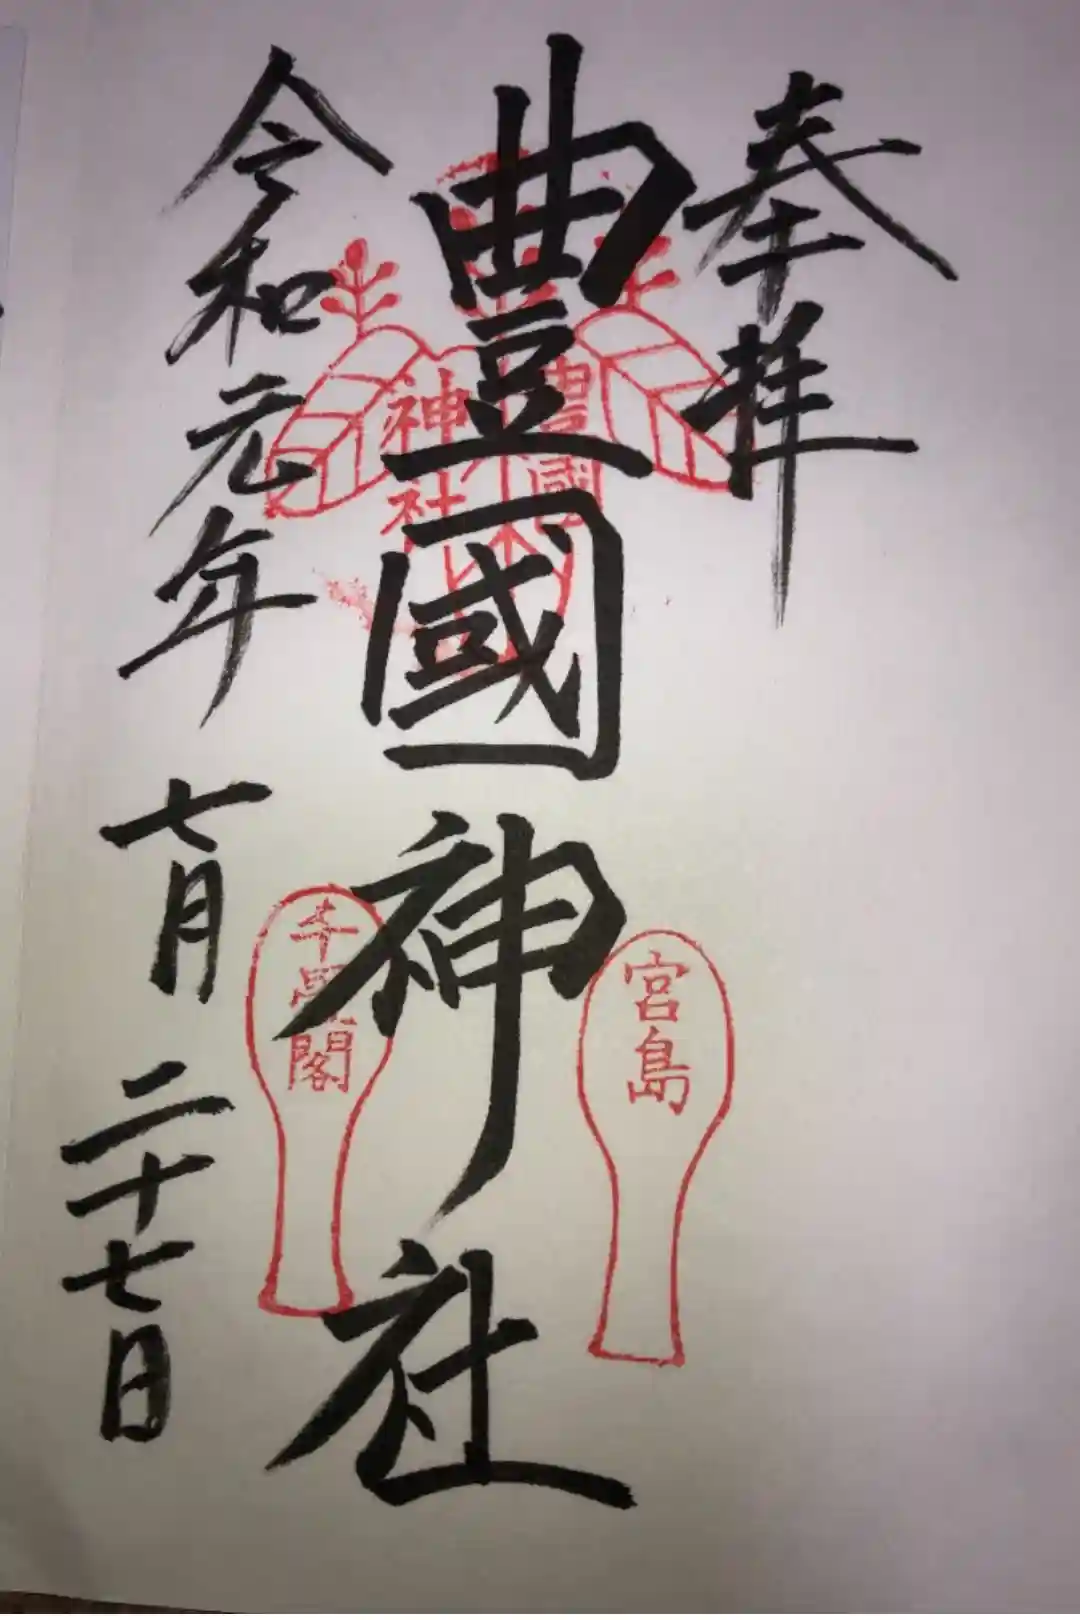 奉拝
豊國神社
令和元年七月二十七日
豊國
神社
宮島
千畳閣